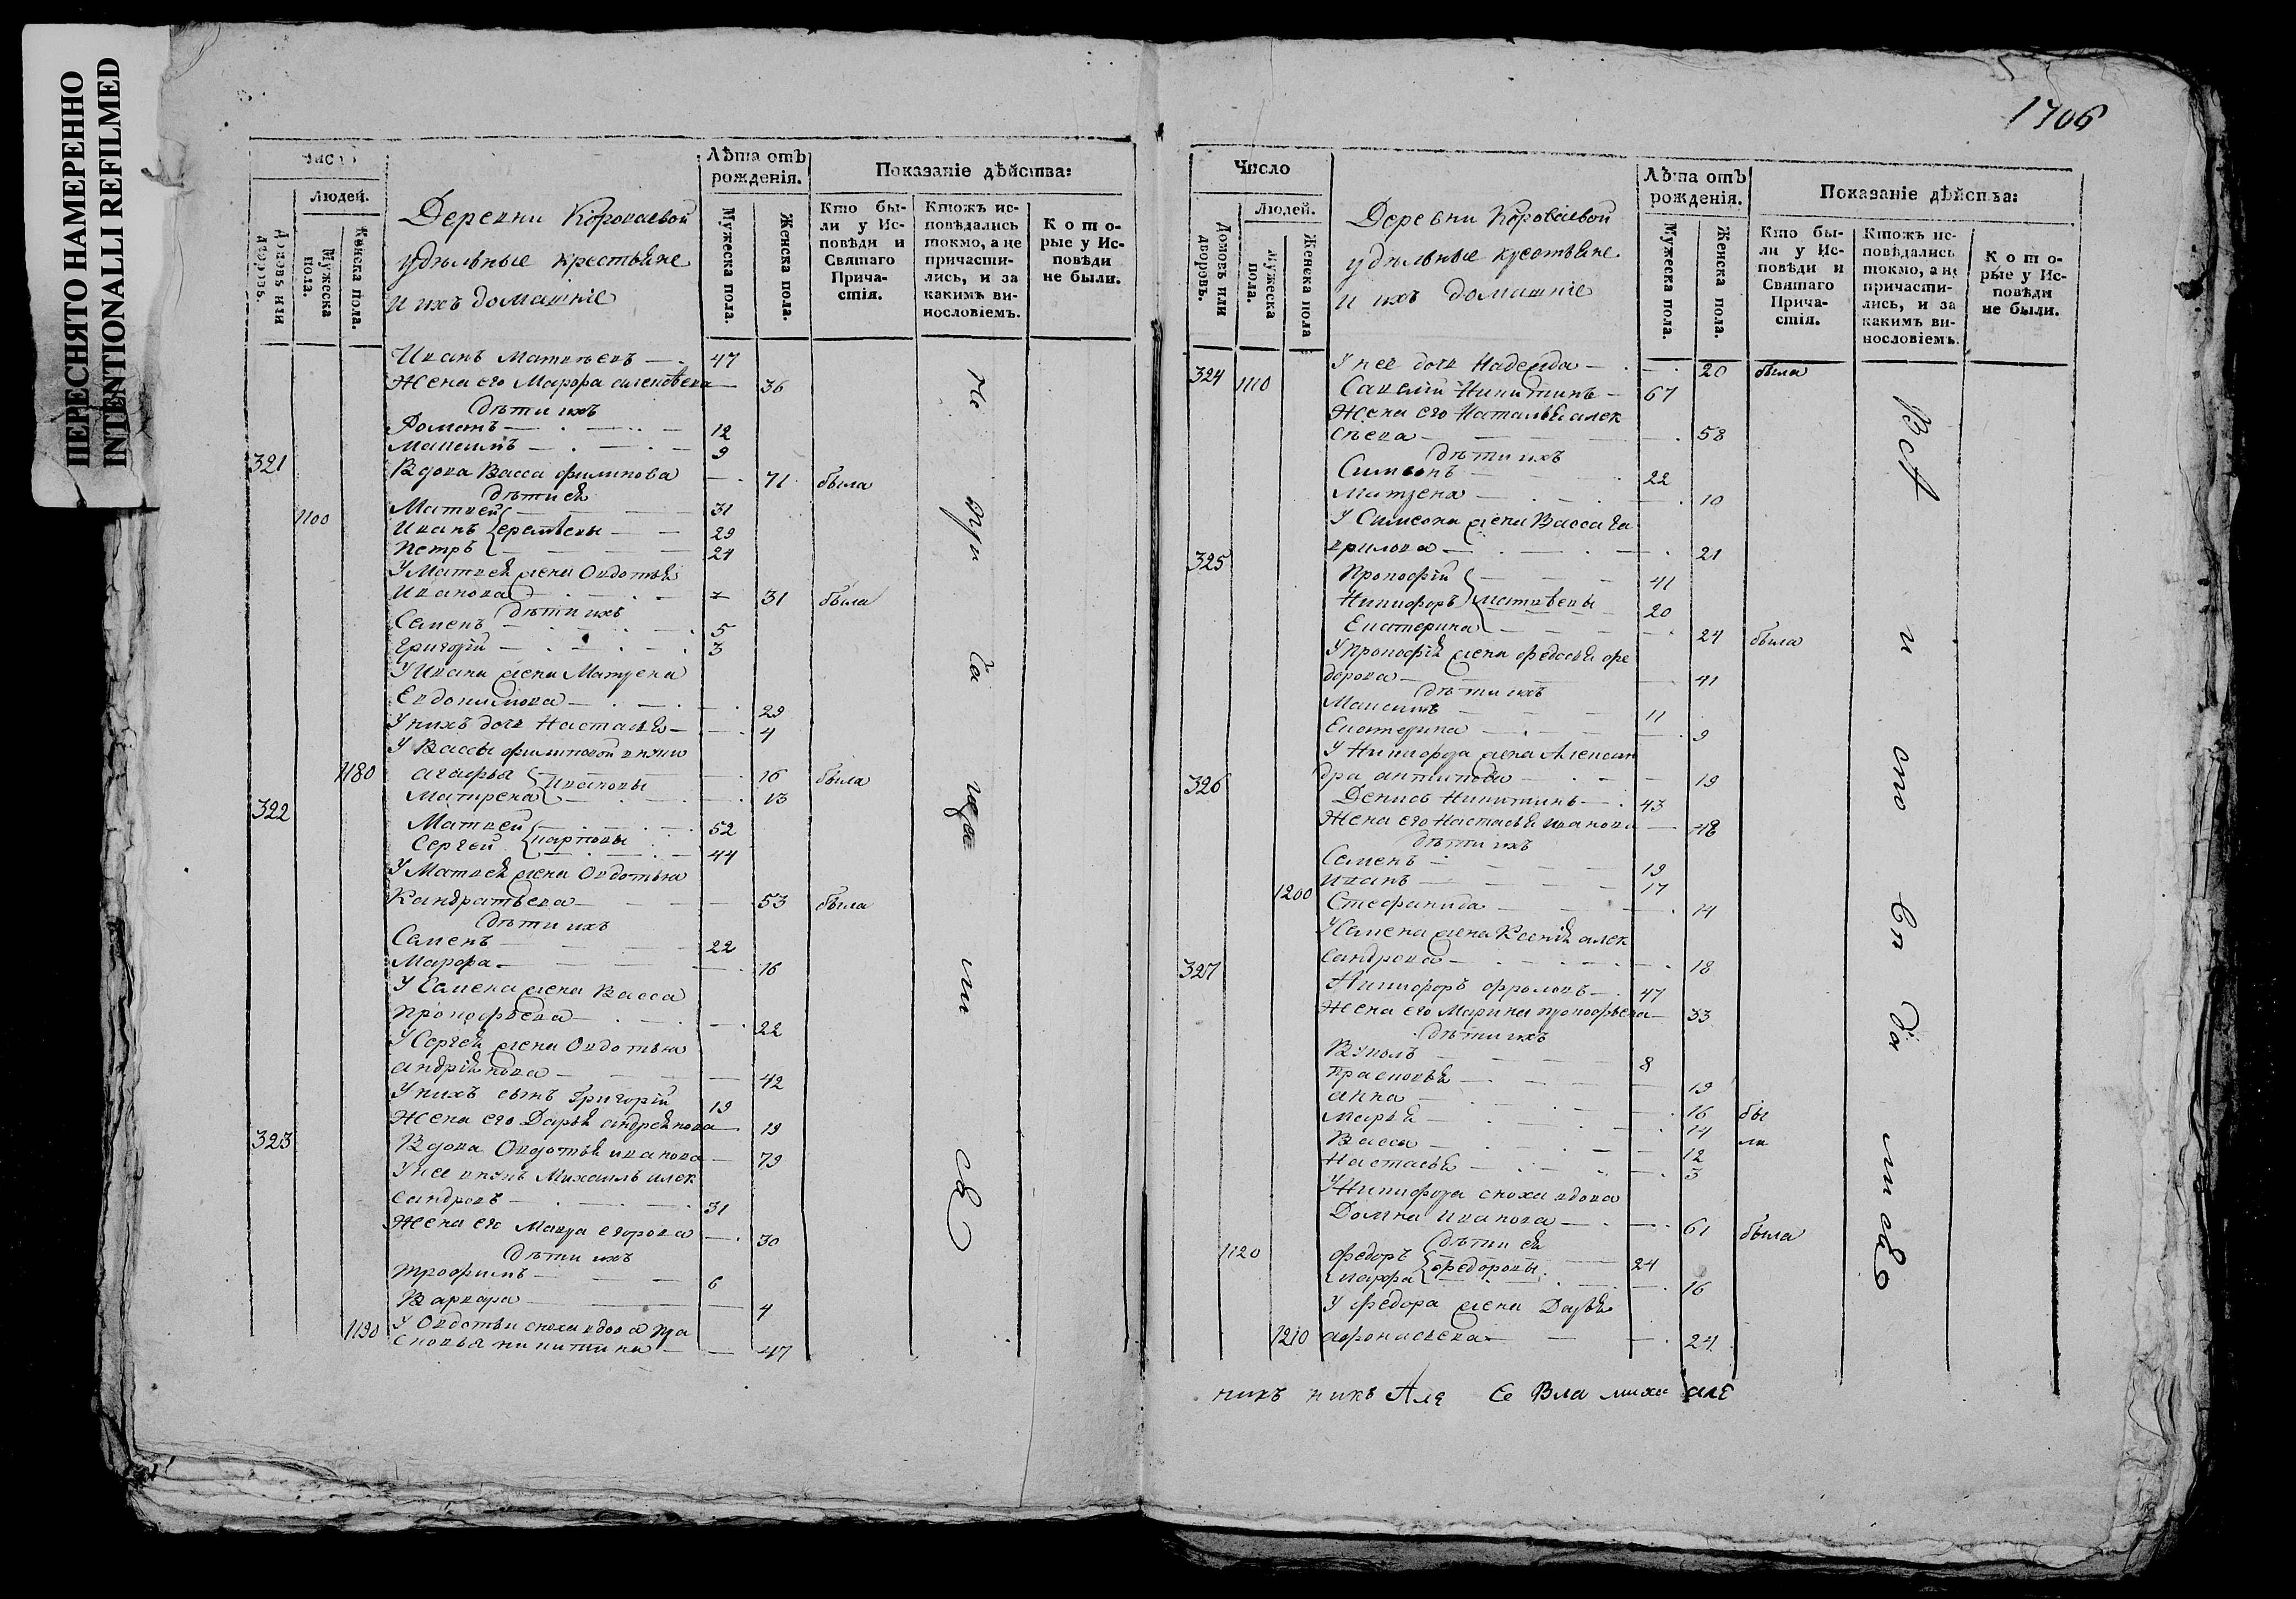 ПЕРЕСНЯТО НАМЕРЕННО
INTENTIONALLI REFILMED
Людей.
Мужеска пола.
Женска пола.
Деревни Короваевой
удѣльные крестьяне
и ихъ домашніе
Лѣта отъ рожденія.
Мужеска пола.
Женска пола.
Показаніе дѣйства:
Кто бы-
ли у Ис-
повѣди и
Святаго
Прича-
стія.
Ктожъ ис-
повѣдались
токмо, а не
причасти-
лись, и за
какимъ ви-
нословіемъ.
Кото-
рые у Ис-
повѣди
не были.
Иванъ Матвѣевъ 47
Жена его Марфа алексѣева 36
дѣти ихъ
12
Максимъ 9
321 Вдова Васса филипова 71 была
дѣти ея
Матвей 31
1100 Иванъ 29
Петръ 24
У Матвея жена Овдотья
Иванова 31 была
дѣти ихъ
Семенъ 5
Григорій 3
У Ивана жена Матрена
Евдокимова 29
У нихъ дочь Настасья 4
У Вассы филиповой внуки
1180 агафья Ивановы 16 была
Матрена 13
322 Матвей 52
Сергей карповы 44
У Матвея жена Овдотья
Кандратьева 53 была
дѣти ихъ
Семенъ 22
Марфа 16
У Семена жена Васса
Прокофьева 22
У Сергея жена Овдотья
андріянова 42
У нихъ сынъ Григорій 19
Жена его Дарья андреянова 19
323 Вдова Овдотья иванова 79
У нее внукъ Михаилъ алек
сандровъ 31
Жена его Мавра егорова 30
дѣти ихъ
трофимъ 6
Варвара 4
1190 У Овдотьи сноха вдова пра
сковья никитина 47
1706
Число
Домовъ или дворовъ.
Людей.
Мужеска пола.
Женска пола
Деревни Короваевой
удѣльные крестьяне
и ихъ домашніе
Лѣта отъ рожденія.
Мужеска пола.
Женска пола.
Показаніе дѣйства:
Кто бы-
ли у Ис-
повѣди и
Святаго
Прича-
стія.
Ктожъ ис-
повѣдались
токмо, а не
причасти-
лись, и за
какимъ ви-
нословіемъ.
Кото-
рые у Ис-
повѣди
не были.
У нее дочь Надежда 20 была
324 1110 Савелій Никитинъ 67
Жена его Наталья алек
сѣева 58
дѣти ихъ
Симеонъ 22
Матрена 10
У Симеона жена Васса га
врилова 21
325 Прокофій 41
Никифоръ матвѣевы 20
Екатерина 24 была
У Прокофія жена федосья фе
дорова 41
дѣти ихъ
Максимъ 11
Екатерина 9
У Никифора жена Алексан
дра антипова 19
326 Денисъ Никитинъ 43
Жена его Настасья иванова 48
дѣти ихъ
Семенъ 19
Иванъ 17
1200 Стефанида 14
У Семена жена Ксенія алек
сандрова 18
327 Никифоръ фроловъ 47
Жена его Марина прокофьева 33
дѣти ихъ
8
Прасковья 19
анна 16 бы
Марья 14 ли
Васса 12
Настасья 3
У Никифора сноха вдова
Домна иванова 61 была
дѣти ея
1120 федоръ федоровы 24
марфа 16
У федора жена Дарья
1210 афонасьева 24
никъ никъ Але Ео Вла михе але